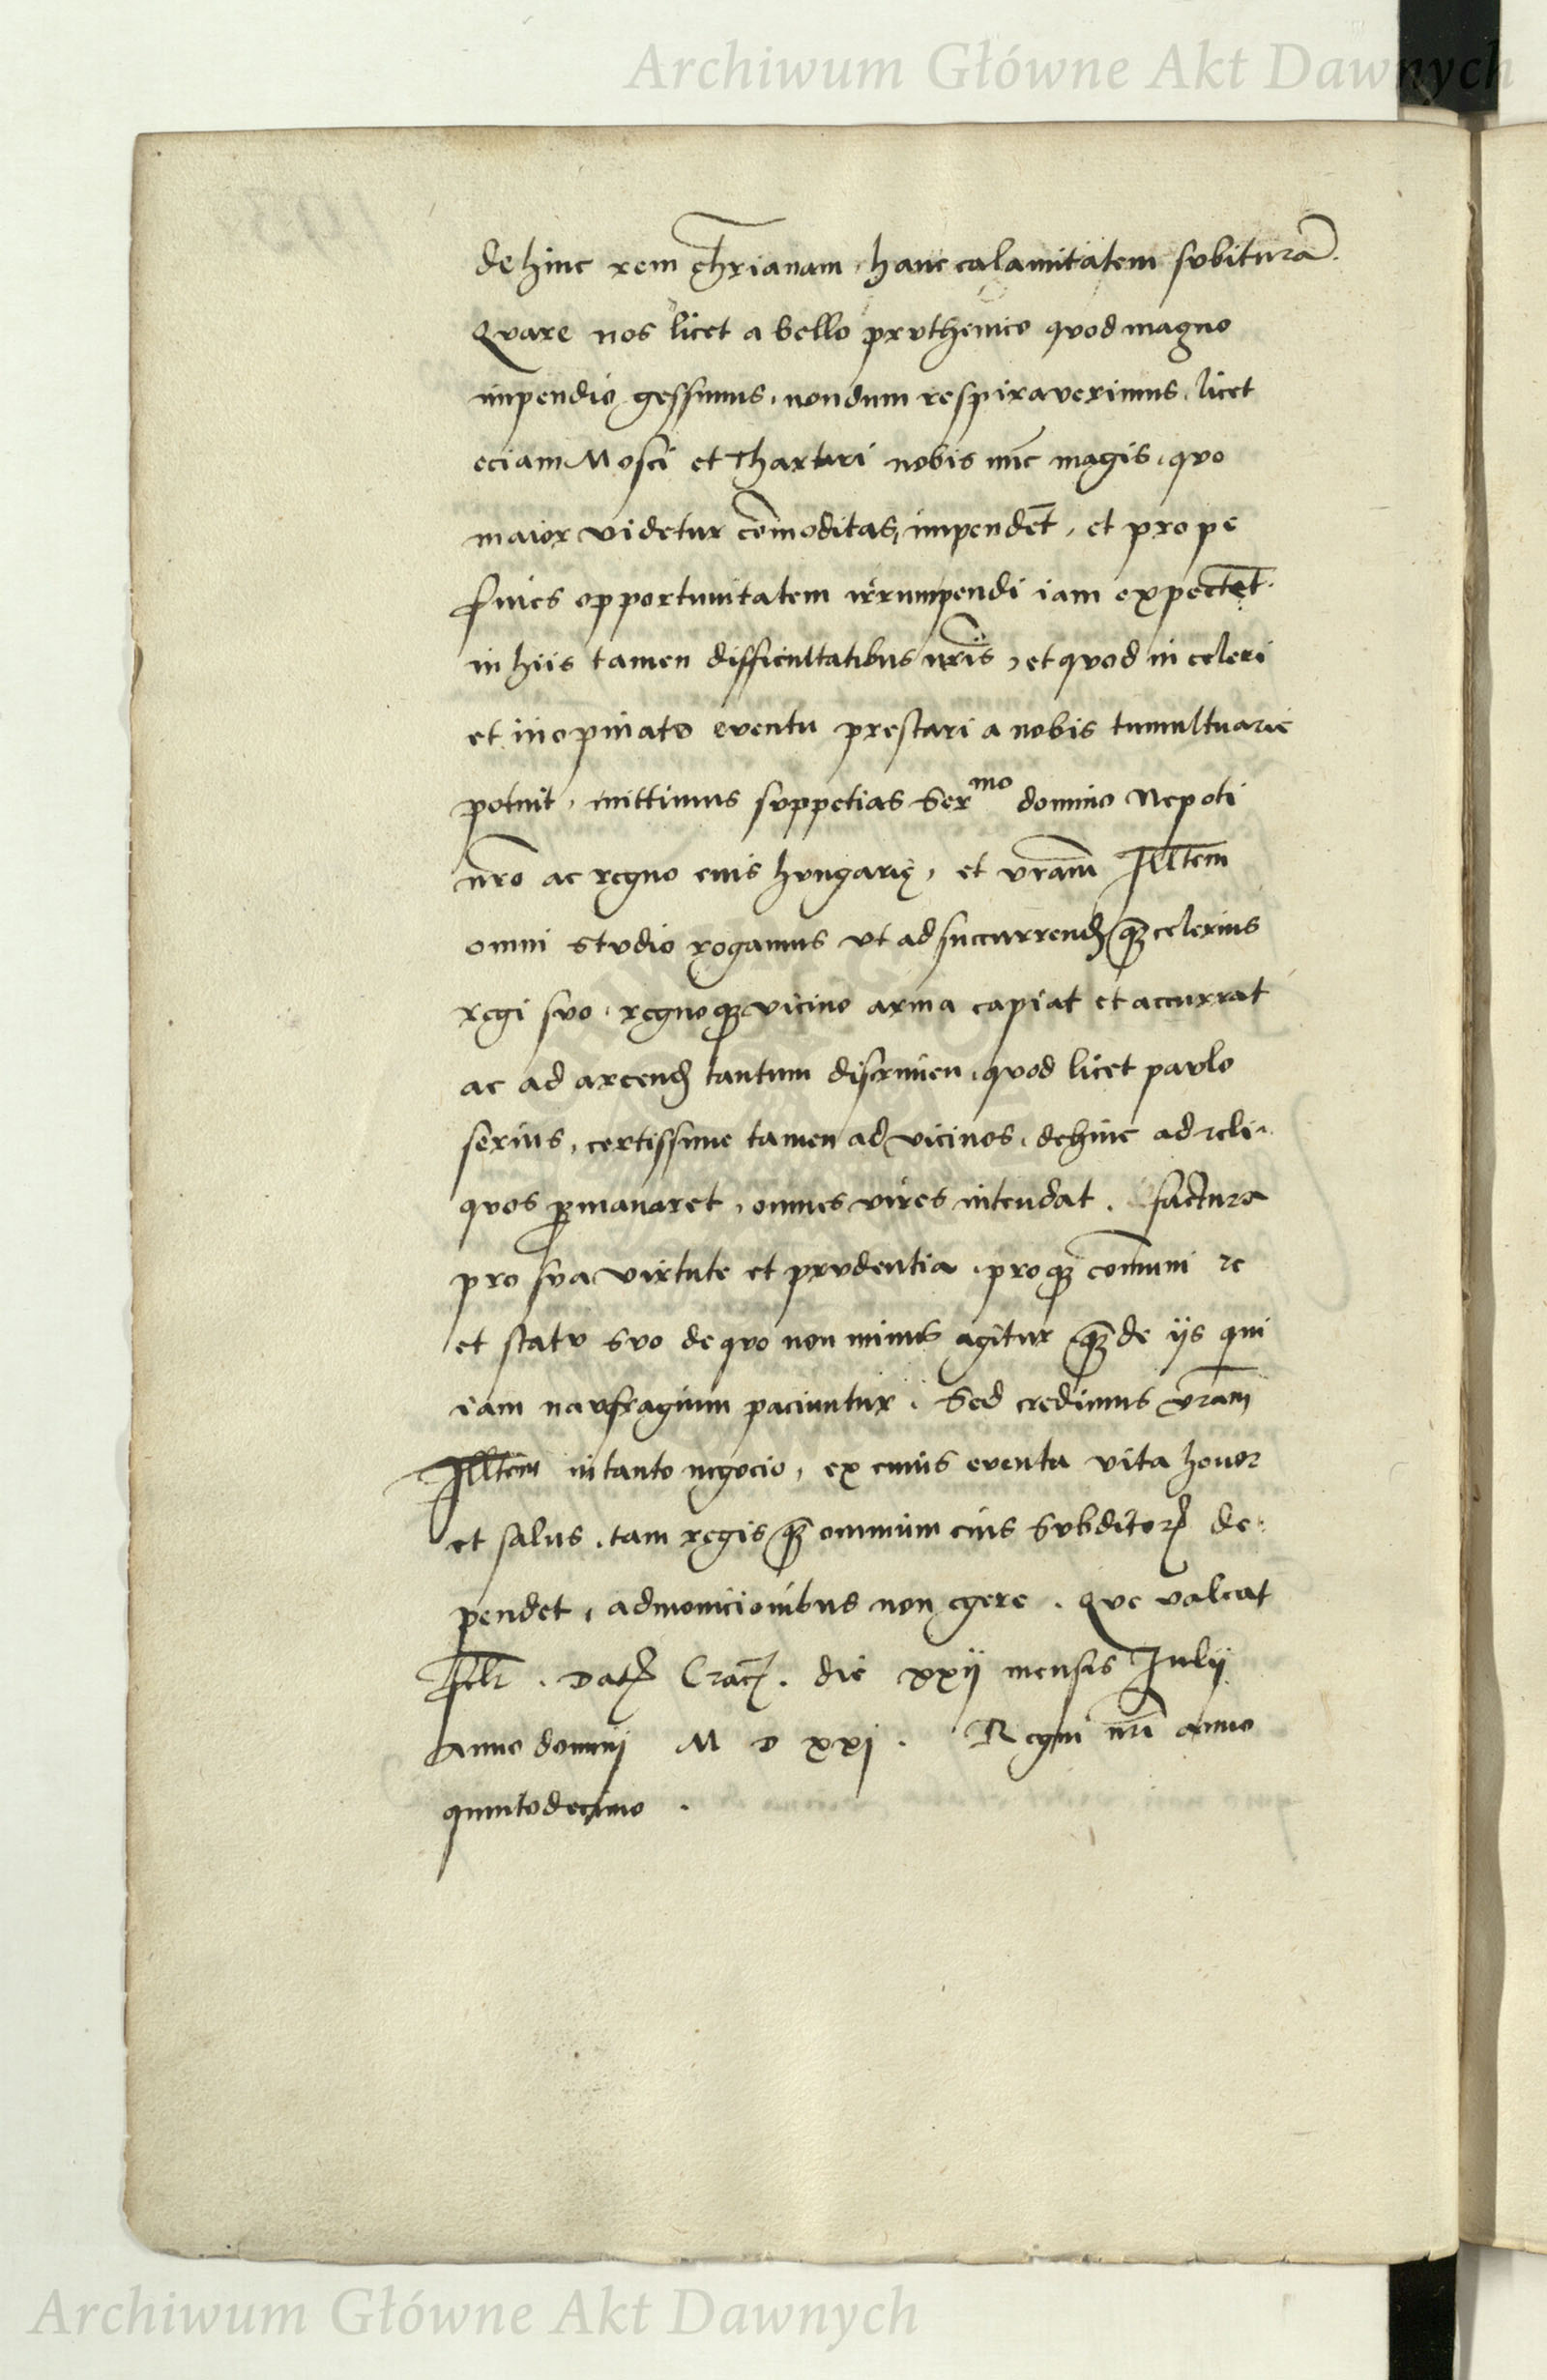 Archiwum Główne Akt Dawnych
dehinc rem chrianam, hanc calamitatem subiturã.
Quare nos licet a bello pruthenico quod magno
impendio gessimus, nondum respiraverimus, licet
eciam Mosci et Thartari nobis nũc magis, quo
maior videtur cõmoditas, impendẽt, et prope
fines opportunitatem irrumpendi iam expectẽt.
in hiis tamen difficultatibus nr̃is, et quod in celeri
et inopinato eventu prestari a nobis tumultuarie
potuit, mittimus suppetias Ser^mo domino Nepoti
nr̃o ac regno eius hungarię, et vr̃am Illtem
omni studio rogamus ut ad succurrend̃ q̃ celerius
regi suo, regnoq; vicino arma capiat et accurrat
ac ad arcend̃ tantum discrimen, quod licet paulo
serius, certissime tamen ad vicinos, dehinc ad reli-
quos ꝑmanaret, omnes vires intendat. factura
pro sua virtute et prudentia, proq; com̃uni re
et statu suo de quo non minus agitur q̃ de iis qui
iam naufragium paciuntur. Sed credimus vr̃am
Illtem in tanto negocio, ex cuius eventu vita honor
et salus, tam regis q̃ omnium eius subditoꝝ de-
pendet, admonicionibus non egere. Que valeat
felr̃. Dat̃ Crac̃. die xxij mensis Julij
Anno domini M D xxj. Regni nr̃i anno
quintodecimo.
Archiwum Główne Akt Dawnych